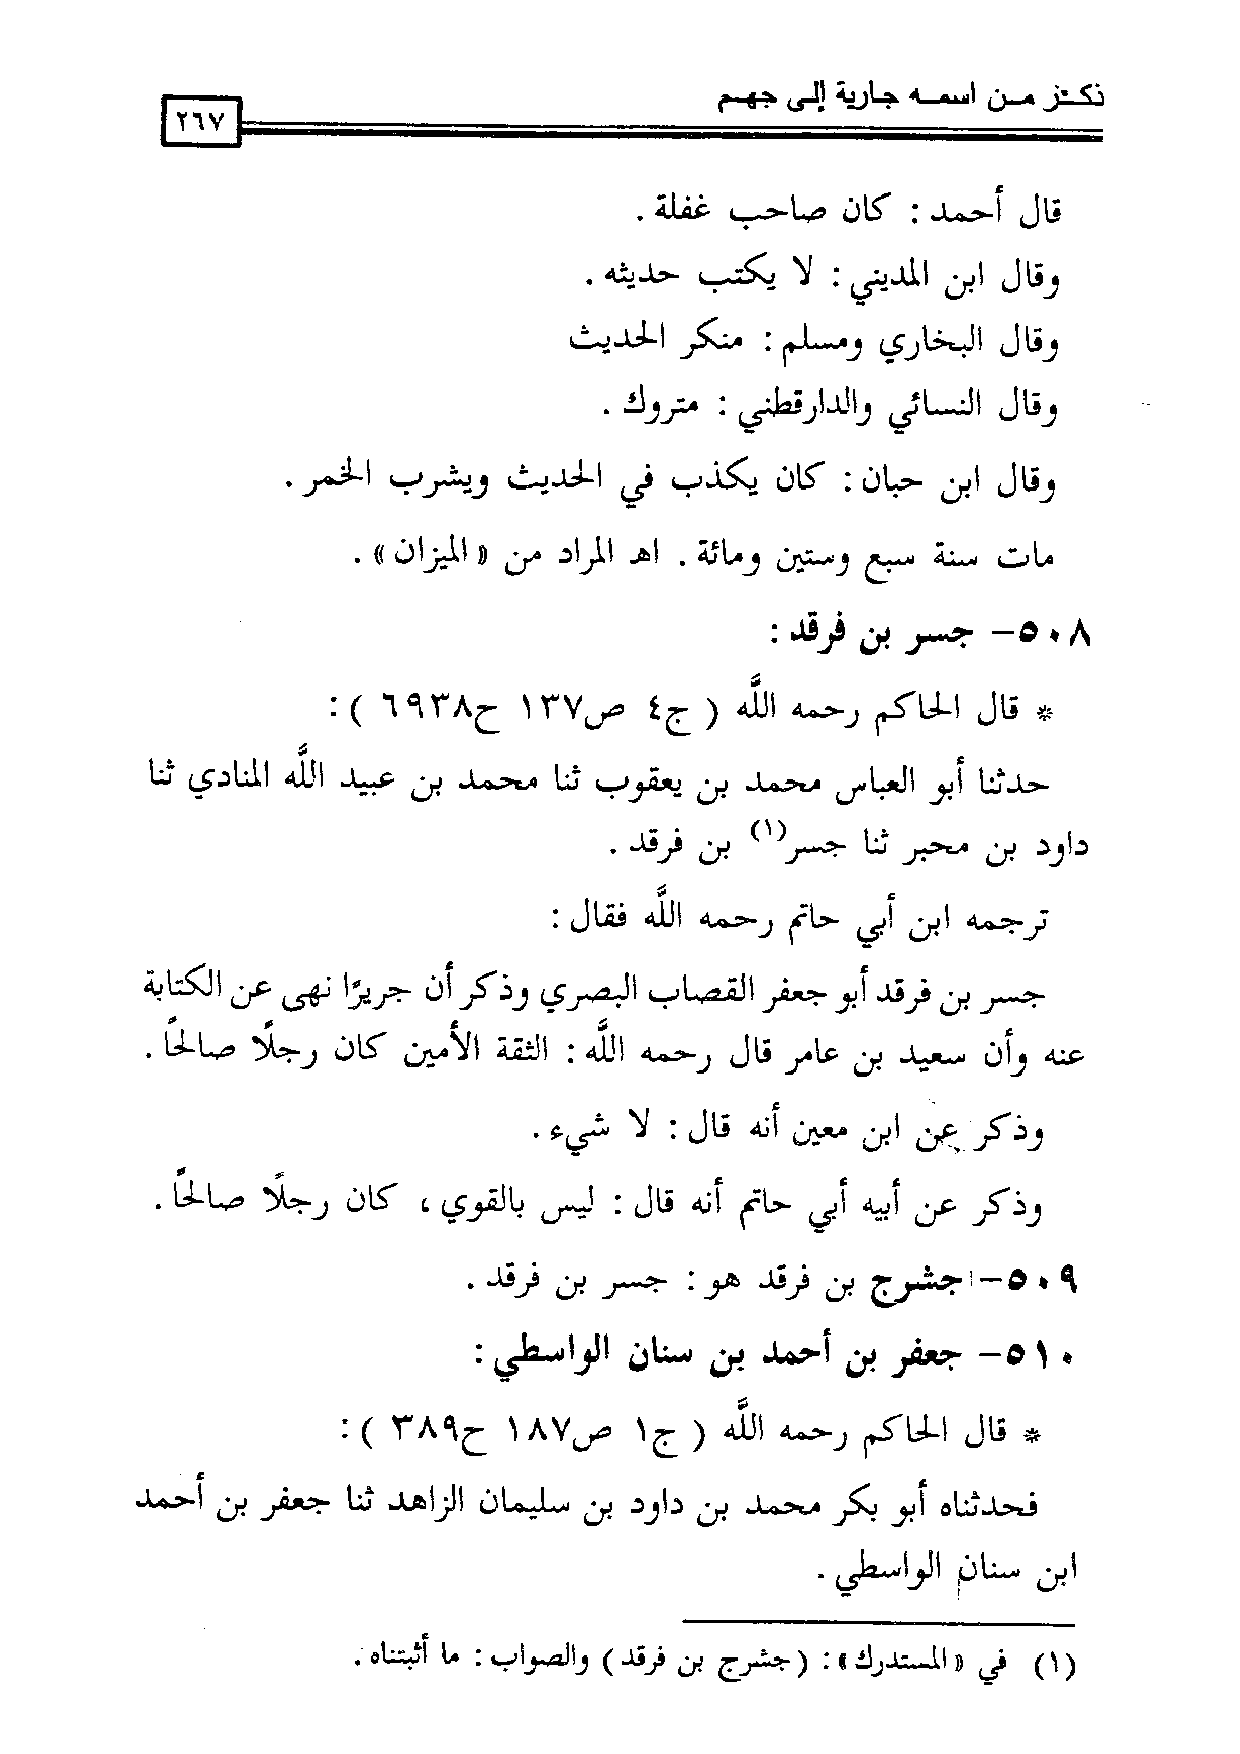 ذكـر مـن اسمـه جارية إلى جهـم
٢٦٧
قال أحمد : كان صاحب غفلة .
وقال ابن المديني : لا يكتب حديثه .
وقال البخاري ومسلم : منكر الحديث
وقال النسائي والدارقطني : متروك .
وقال ابن حبان : كان يكذب في الحديث ويشرب الخمر .
مات سنة سبع وستين ومائة . اهـ المراد من « الميزان » .
٥٠٨- جسر بن فرقد :
* قال الحاكم رحمه اللَّه ( ج٤ ص١٣٧ ح٦٩٣٨ ) :
حدثنا أبو العباس محمد بن يعقوب ثنا محمد بن عبيد اللَّه المنادي ثنا
داود بن محبر ثنا جسر(١) بن فرقد .
ترجمه ابن أبي حاتم رحمه اللَّه فقال :
جسر بن فرقد أبو جعفر القصاب البصري وذكر أن جريرًا نهى عن الكتابة
عنه وأن سعيد بن عامر قال رحمه اللَّه : الثقة الأمين كان رجلًا صالحًا .
وذكر عن ابن معين أنه قال : لا شيء .
وذكر عن أبيه أبي حاتم أنه قال : ليس بالقوي ، كان رجلًا صالحًا .
٥٠٩- جشرج بن فرقد هو : جسر بن فرقد .
٥١٠- جعفر بن أحمد بن سنان الواسطي :
* قال الحاكم رحمه اللَّه ( ج١ ص١٨٧ ح٣٨٩ ) :
فحدثناه أبو بكر محمد بن داود بن سليمان الزاهد ثنا جعفر بن أحمد
ابن سنان الواسطي .
(١) في « المستدرك » : ( جشرج بن فرقد ) والصواب : ما أثبتناه .